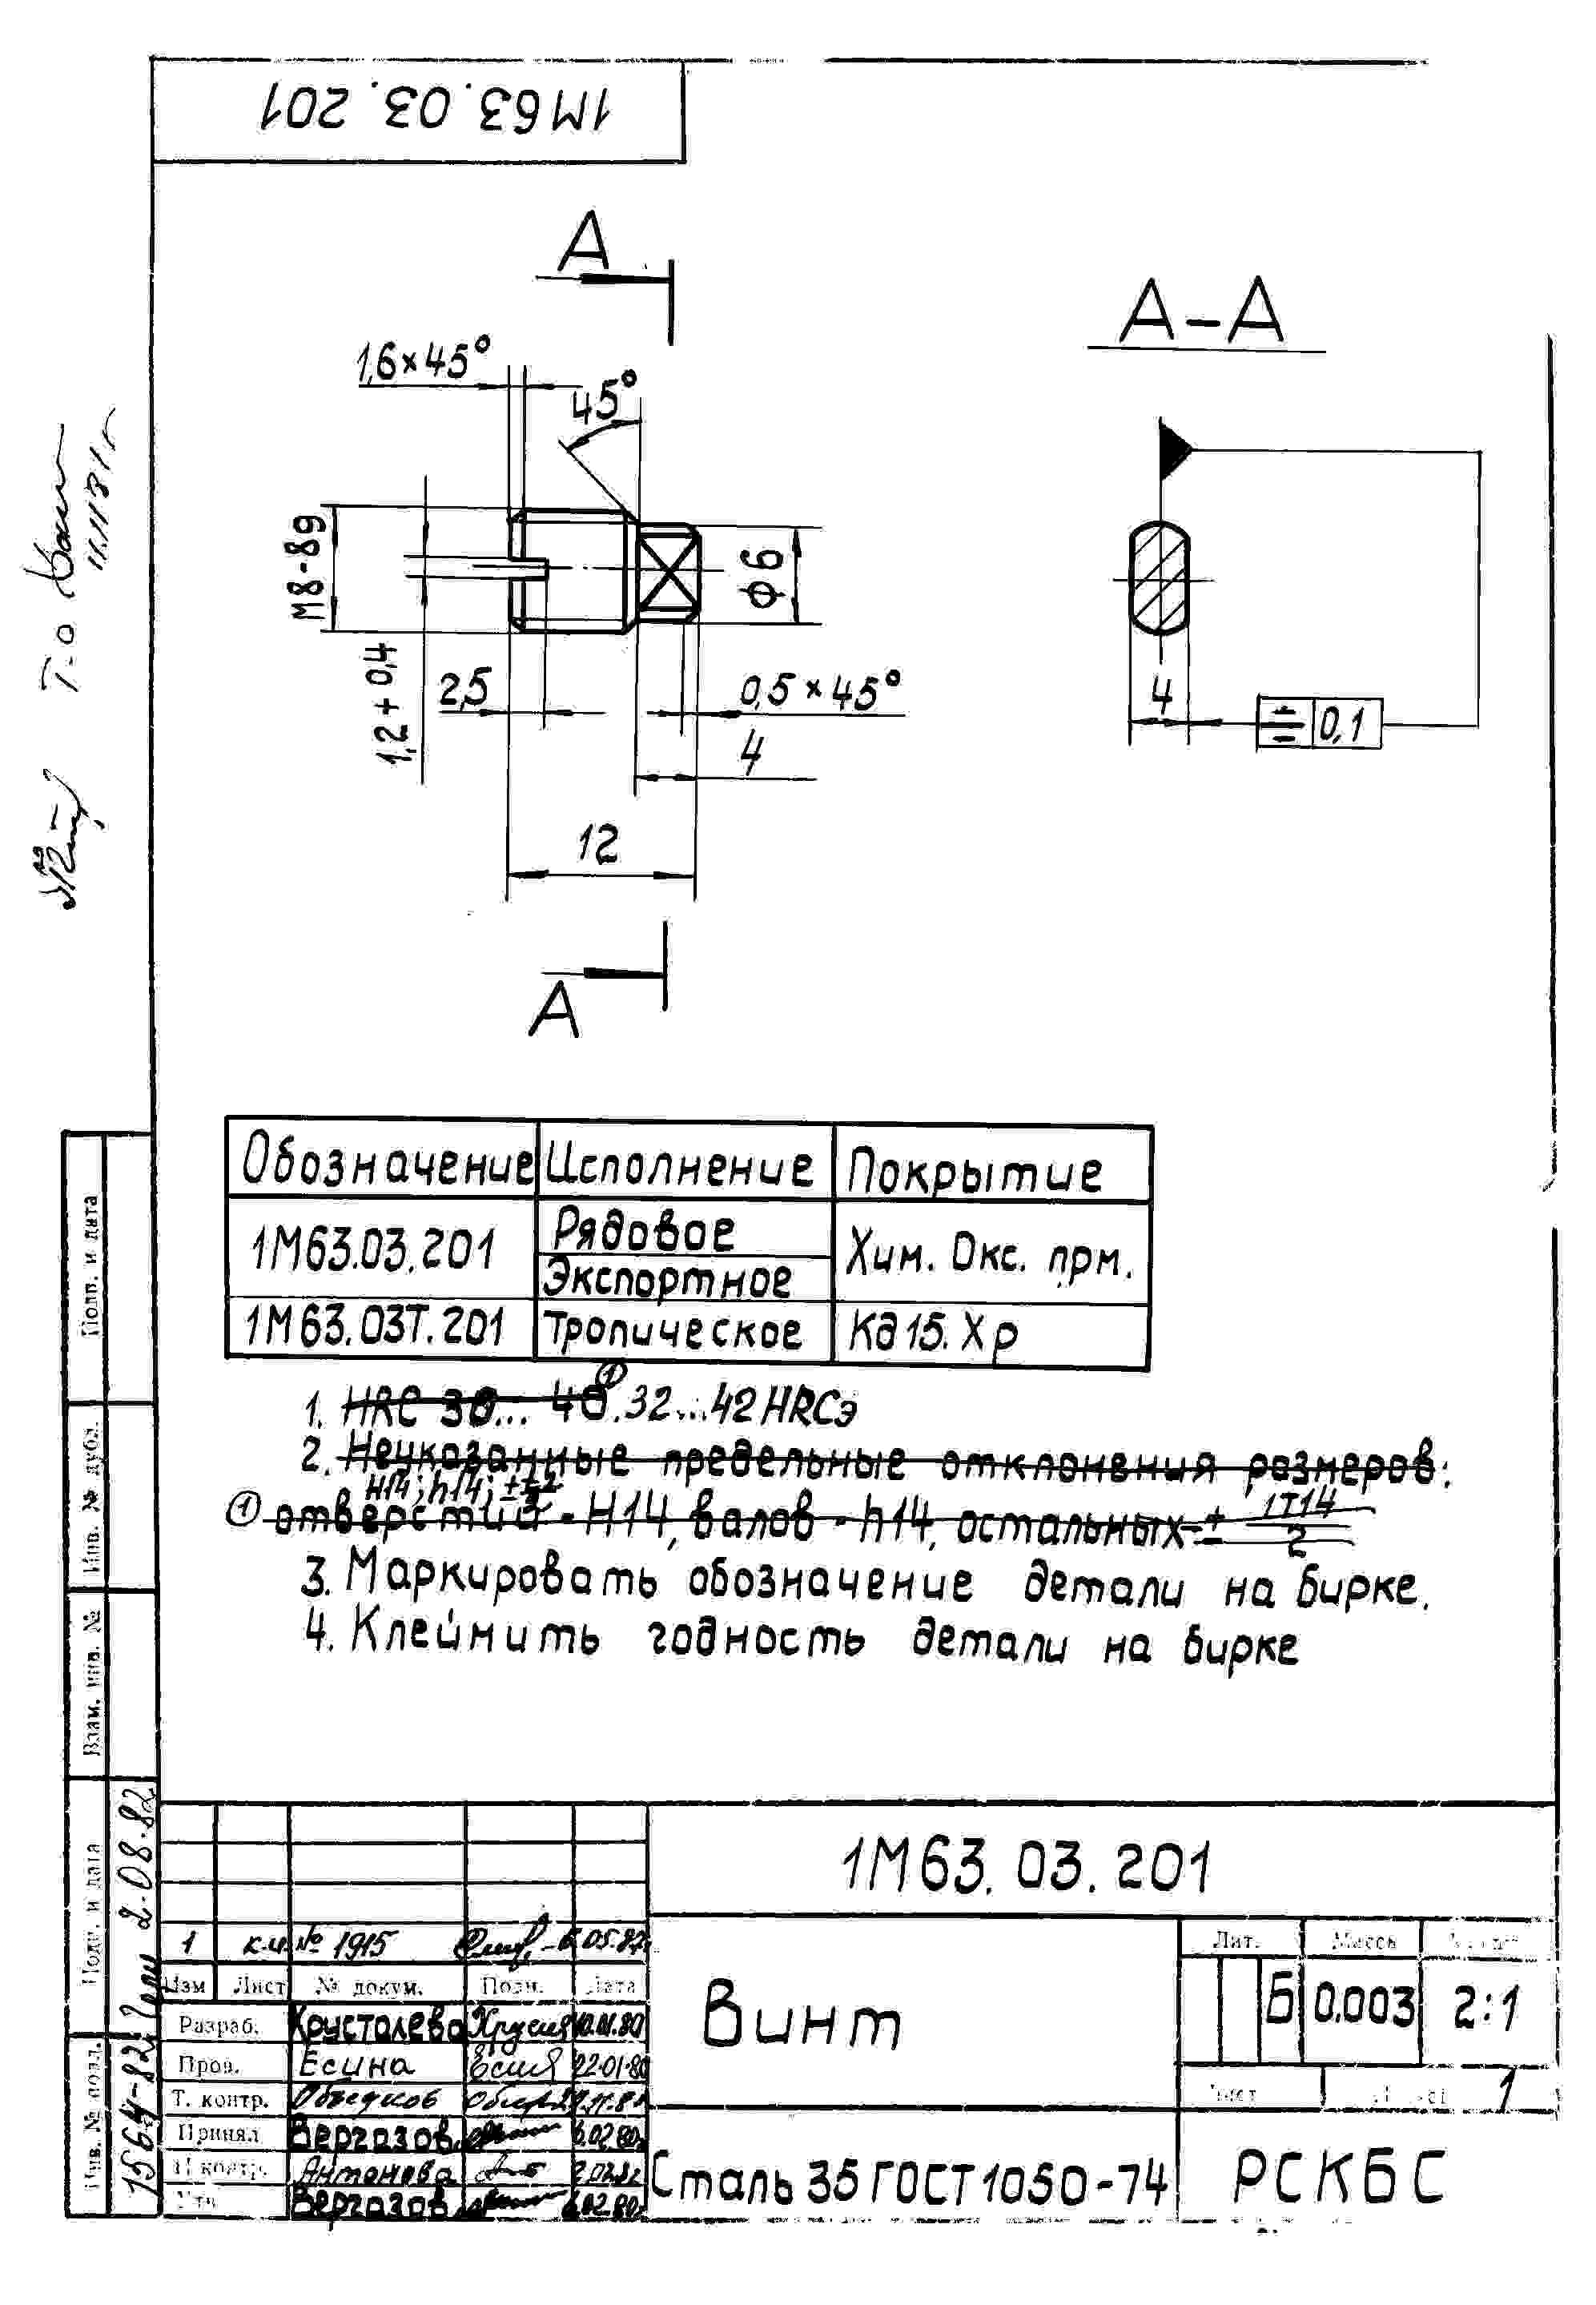 1М63.03.201
А
А-А
1,6×45°
45°
М8-8g
⌀6
1,2+0,4
2,5
0,5×45°
4
12
4
0,1
А
Обозначение Исполнение Покрытие
1М63.03.201 Рядовое Хим. Окс. прм.
Экспортное
1М63.03Т.201 Тропическое Кд15.Хр
1. HRC 30... 40. ① 32...42 HRCэ
2. Неуказанные предельные отклонения размеров:
H14; h14; ±
① отверстий - H14, валов - h14, остальных ± IT14/2
3. Маркировать обозначение детали на бирке.
4. Клеймить годность детали на бирке
Подп. и дата
Инв. № дубл.
Взам. инв. №
Подп. и дата
2.08.82
Инв. № подл.
1564-82
1М63.03.201
1 к.и. № 1915 05.87
Изм Лист № докум. Подп. Дата
Разраб. Крусталева 10.01.80
Пров. Есина 22.01.80
Т. контр. Объедков
Принял Вергазов 6.02.80
Н контр. Антонова
Утв. Вергазов 6.02.80
Винт
Лит. Масса
Б 0.003 2:1
Лист 1
Сталь 35 ГОСТ 1050-74
РСКБС